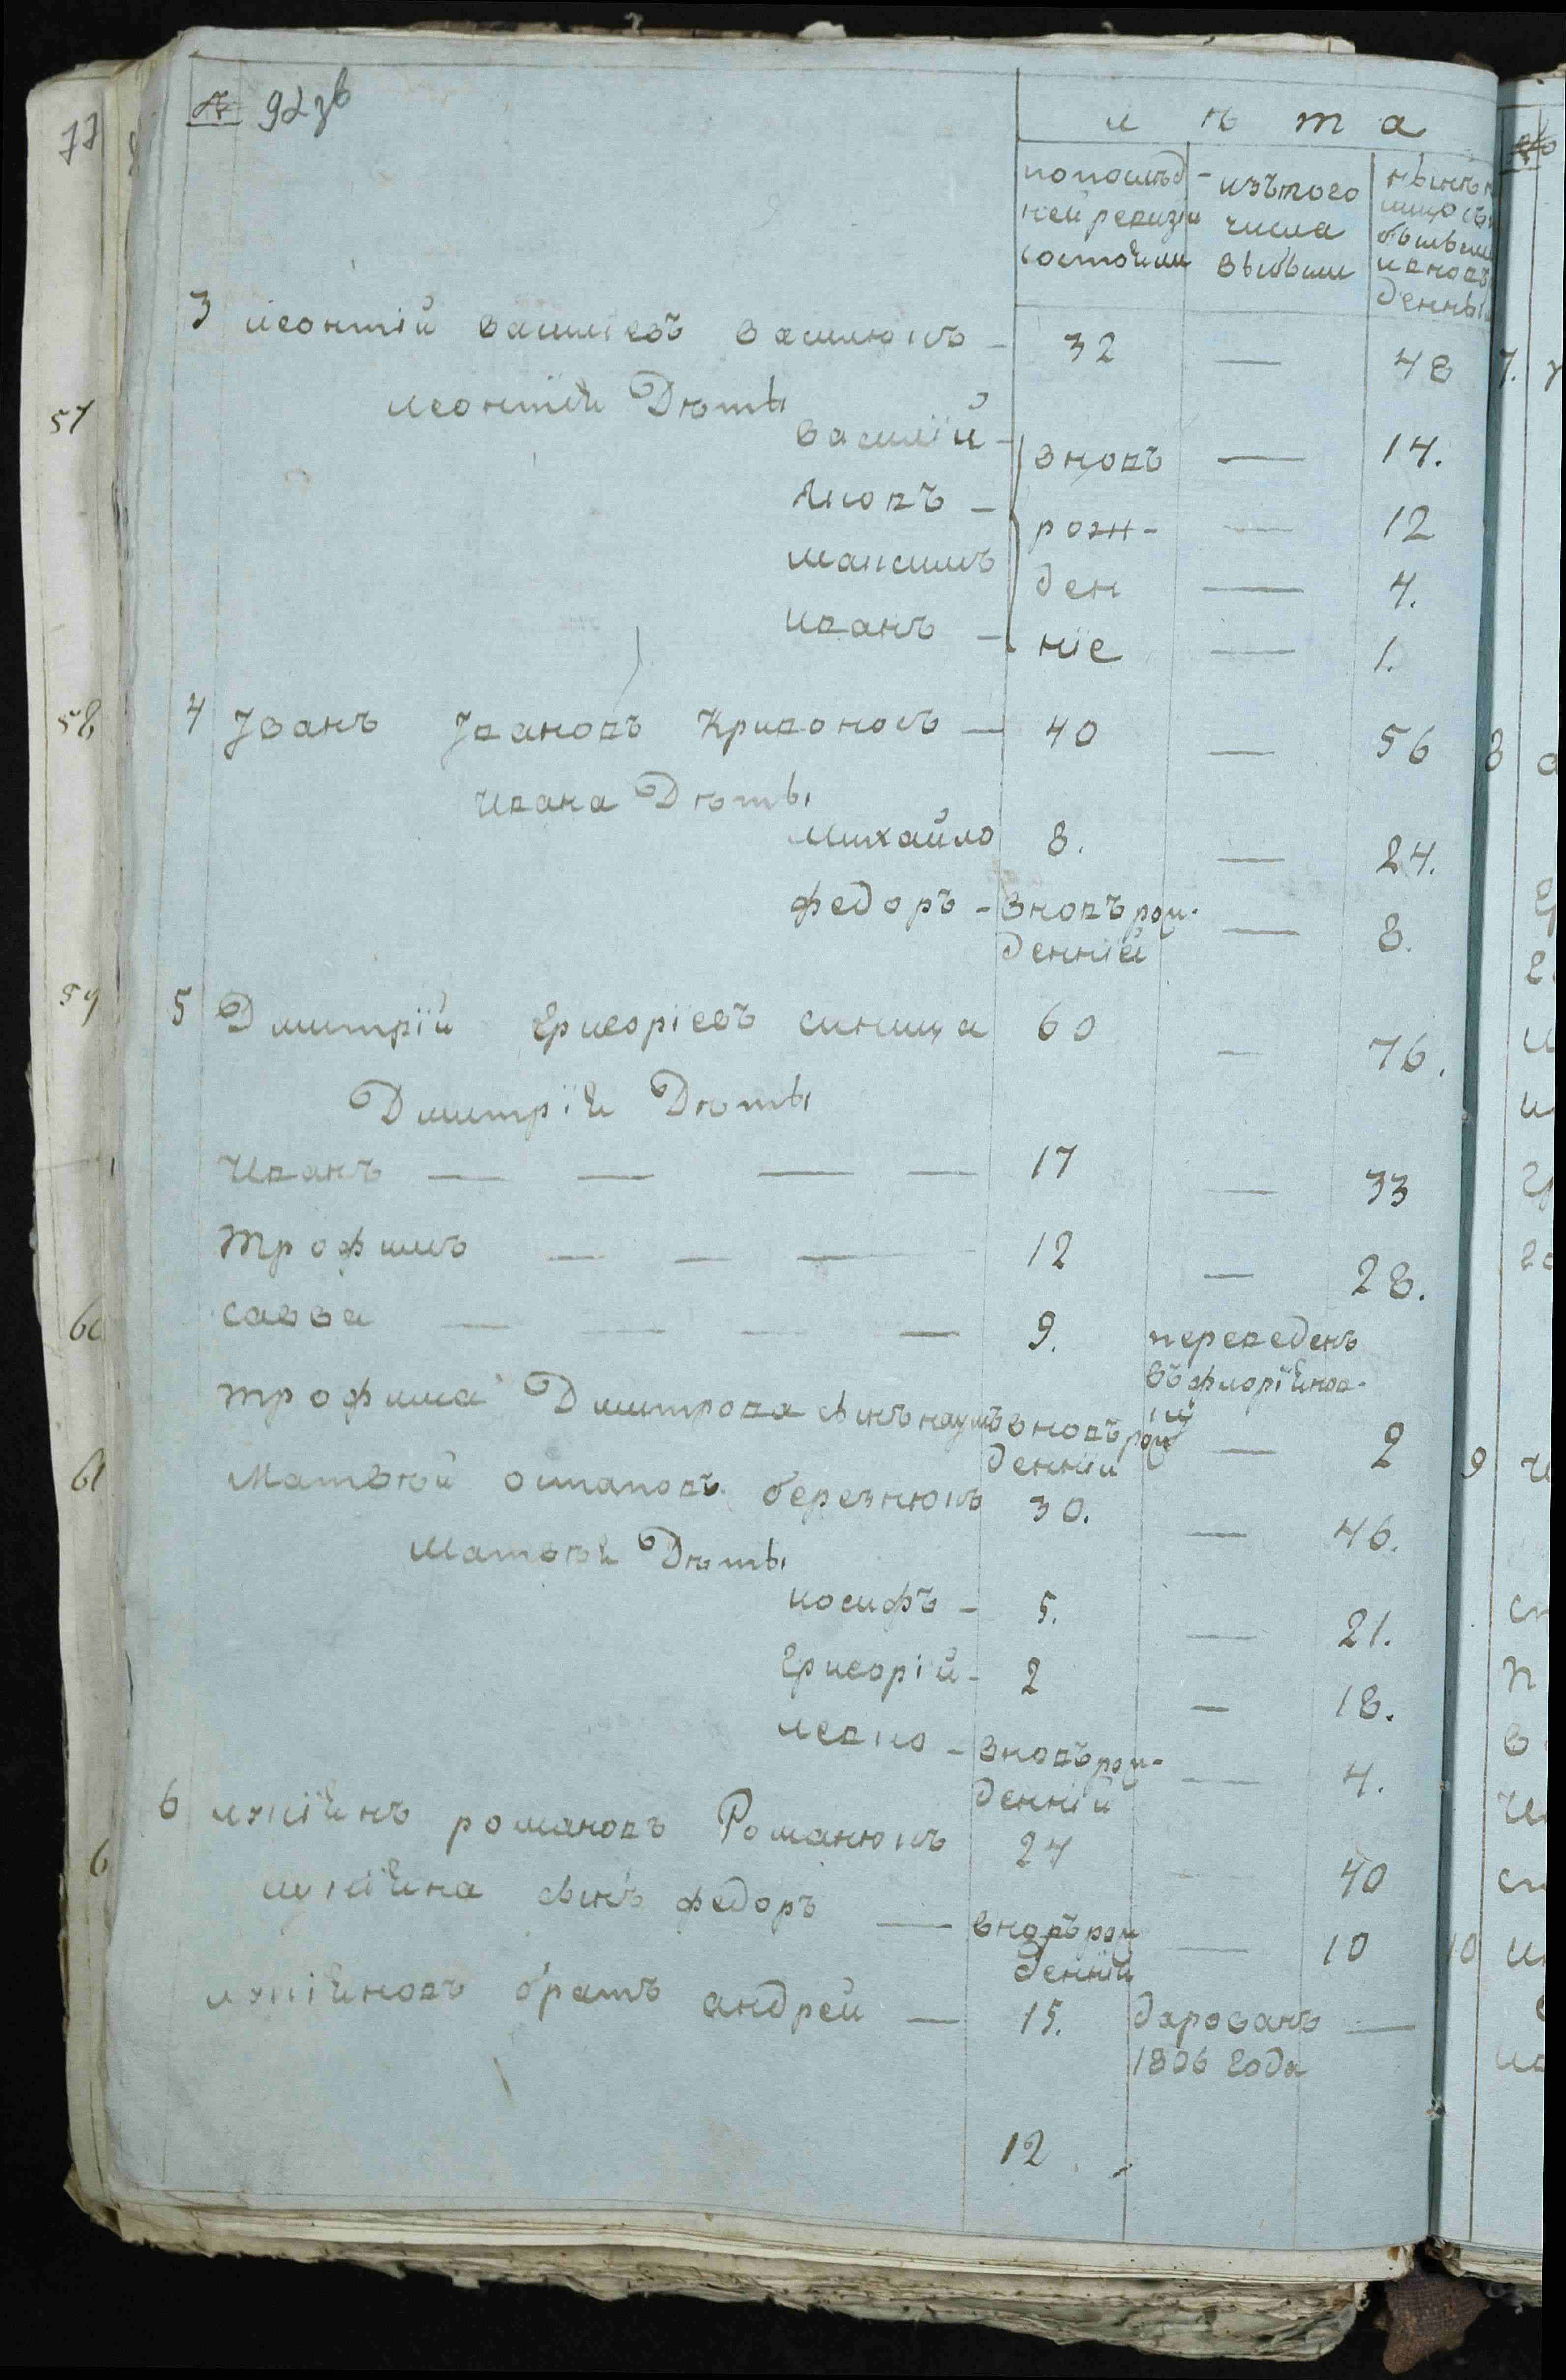 92 зв
77
лѣта
по послѣд-
ней ревизіи
состояли
изъ того
числа
выбыли
3 Леонтій Василіевъ Василюкъ — 32 — 48
Леонтія Дѣти
Василій — вновь — 14.
Яковъ — рож- — 12
Максимъ ден — 4.
Иванъ — ніе — 1.
57
58
4 Іванъ Івановъ Кривоносъ — 40 — 56
Ивана Дѣти
Михайло 8. — 24.
Федоръ — вновь рож-
денній — 8.
59
5 Дмитрій Григоріевъ Синица 60 — 76.
Дмитрія Дѣти
Иванъ — — — — 17 — 33
Трофимъ — — — 12 — 28.
60
Савва — — — — 9. переведенъ
Трофима Дмитрова сынъ Наумъ вновь рож
денній — 2
61
Матвѣй Остаповъ Березнюкъ 30. — 46.
Матвѣя Дѣти
Иосифъ — 5. — 21.
Григорій — 2 — 18.
Левко — вновь рож-
денній — 4.
6
6 Лукіянъ Романовъ Романюкъ 24 — 40
Лукіяна сынъ Федоръ — вновь рож
денній — 10
Лукіяновъ братъ Андрей — 15. —
1806 года
12